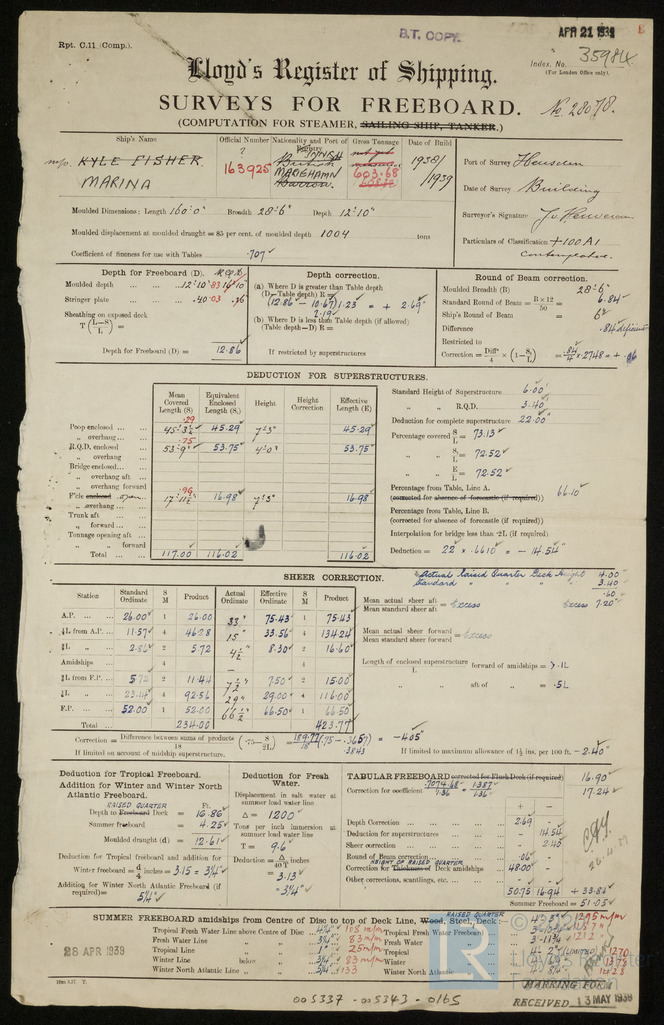 APR 21 1939
B.T. COPY.
Rpt. C.11 (Comp.).
Index. No. 35984
(For London Office only).
Lloyd's Register of Shipping.
SURVEYS FOR FREEBOARD.
No. 28078.
(COMPUTATION FOR STEAMER, SAILING SHIP, TANKER.)
Ship's Name
Official Number
Nationality and Port of Registry
Gross Tonnage
Date of Build
KYLE FISHER.
MARINA
?
163925
FINNISH
British
MARIEHAMN
Barrow.
603.68
1938/1939
Port of Survey Heusden
Date of Survey Building
Surveyor's Signature
Particulars of Classification +100A1
contemplated.
Moulded Dimensions: Length 160'0" Breadth 28'6" Depth 12'10"
Moulded displacement at moulded draught = 85 per cent. of moulded depth 1004 tons
Coefficient of fineness for use with Tables .707
Depth for Freeboard (D).
Moulded depth ... ... 12'10"
Stringer plate ... ... .40 .03
Sheathing on exposed deck
T (L-S/L) =
Depth for Freeboard (D) = 12.86
Depth correction.
(a) Where D is greater than Table depth
(D-Table depth) R =
(12.86 - 10.67) 1.23 = + 2.69"
2.19
(b) Where D is less than Table depth (if allowed)
(Table depth-D) R =
If restricted by superstructures
Round of Beam correction.
Moulded Breadth (B) 28'6"
Standard Round of Beam = B×12/50 = 6.84
Ship's Round of Beam = 6"
Difference .84 deficient
Restricted to
Correction = Diff°/4 × (1-S₁/L) = .84/4 × .2748 = + .06
DEDUCTION FOR SUPERSTRUCTURES.
Mean Covered Length (S)
Equivalent Enclosed Length (S₁)
Height
Height Correction
Effective Length (E)
Poop enclosed ... ... 45'3½" .29 45.29 7'3" 45.29
„ overhang ... ...
R.Q.D. enclosed 53'9" .75 53.75 4'0" 53.75
„ overhang
Bridge enclosed...
„ overhang aft ...
„ overhang forward
F'cle enclosed open .. 17'11½" .96 16.98 7'3" 16.98
„ overhang ...
Trunk aft ...
„ forward ...
Tonnage opening aft ...
„ „ forward
Total ... 117.00 116.02 116.02
Standard Height of Superstructure 6.00'
„ „ R.Q.D. 3.40'
Deduction for complete superstructure 22.00"
Percentage covered S/L = 73.13
„ „ S₁/L = 72.52
„ „ E/L = 72.52
Percentage from Table, Line A.
(corrected for absence of forecastle (if required)) 66.10
Percentage from Table, Line B.
(corrected for absence of forecastle (if required))
Interpolation for bridge less than ·2L (if required)
Deduction = 22 × .6610 = - 14.54
SHEER CORRECTION.
Station
Standard Ordinate
S M
Product
Actual Ordinate
Effective Ordinate
S M
Product
A.P. ... ... 26.00 1 26.00 33" 75.43 1 75.43
¼L from A.P. ... 11.57 4 46.28 15" 33.56 4 134.24
⅛L „ 2.86 2 5.72 4½" 8.30 2 16.60
Amidships ... 4 — 4
⅛L from F.P. ... 5.72 2 11.44 7½" 7.50 2 15.00
¼L „ 23.14 4 92.56 29" 29.00 4 116.00
F.P. ... ... 52.00 1 52.00 66½" 66.50 1 66.50
Total ... 234.00 423.77
Actual Raised Quarter Deck Height 4.00
Standard „ „ „ „ 3.40
.60
Excess 7.20"
Mean actual sheer aft / Mean standard sheer aft = Excess
Mean actual sheer forward / Mean standard sheer forward = Excess
Length of enclosed superstructure / L forward of amidships = .1L
„ „ aft of „ = .5L
Correction = Difference between sums of products / 18 (·75 - S/2L) = 189.77/18 (.75 - .3657) = - 4.05"
.3843
If limited on account of midship superstructure.
If limited to maximum allowance of 1½ ins. per 100 ft. - 2.40"
Deduction for Tropical Freeboard.
Addition for Winter and Winter North Atlantic Freeboard.
RAISED QUARTER Ft.
Depth to Freeboard Deck = 16.86
Summer freeboard = 4.25
Moulded draught (d) = 12.61
Deduction for Tropical freeboard and addition for
Winter freeboard = d/4 inches = 3.15 = 3¼"
Addition for Winter North Atlantic Freeboard (if required) = 5¼"
Deduction for Fresh Water.
Displacement in salt water at summer load water line
Δ = 1200
Tons per inch immersion at summer load water line
T = 9.6
Deduction = Δ/40T inches
= 3.13
= 3¼"
TABULAR FREEBOARD corrected for Flush Deck (if required) 16.90
Correction for coefficient .707+.68/1.36 = 1.387/1.36 17.24
+ -
Depth Correction ... 2.69 -
Deduction for superstructures ... - 14.54
Sheer correction ... - 2.40
Round of Beam correction ... .06 -
HEIGHT OF RAISED QUARTER
Correction for Thickness of Deck amidships 48.00 -
Other corrections, scantlings, etc. ... - -
50.75 16.94 + 33.81
Summer Freeboard = 51.05
SUMMER FREEBOARD amidships from Centre of Disc to top of Deck Line, Wood, Steel, Deck:-
RAISED QUARTER
28 APR 1939
Tropical Fresh Water Line above Centre of Disc ...
Fresh Water Line „ „ ... 3¼" 83 m/m
Tropical Line „ „ ... 1" 25 m/m
Winter Line below „ ... 3¼" 83 m/m
Winter North Atlantic Line „ „ ... 5¼" 133
Tropical Fresh Water Freeboard
Fresh Water „
Tropical „ (LIMITED) 1270
Winter „
Winter North Atlantic „
MARKING FORM
RECEIVED 13 MAY 1939
10m 8.37. T.
005337-005343-0165
LR